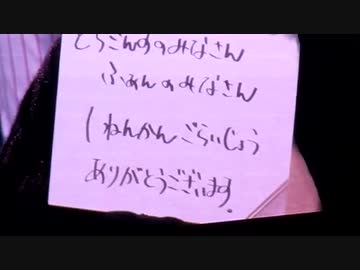 どらごんずのみなさん
ふぁんのみなさん
1ねんかんごらいじょう
ありがとうございます.